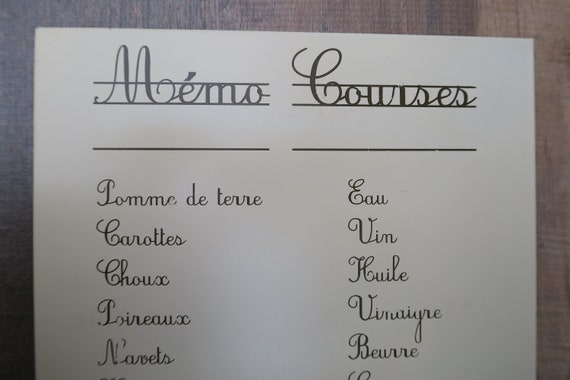 Mémo Courses
Pomme de terre
Carottes
Choux
Poireaux
Navets
Eau
Vin
Huile
Vinaigre
Beurre